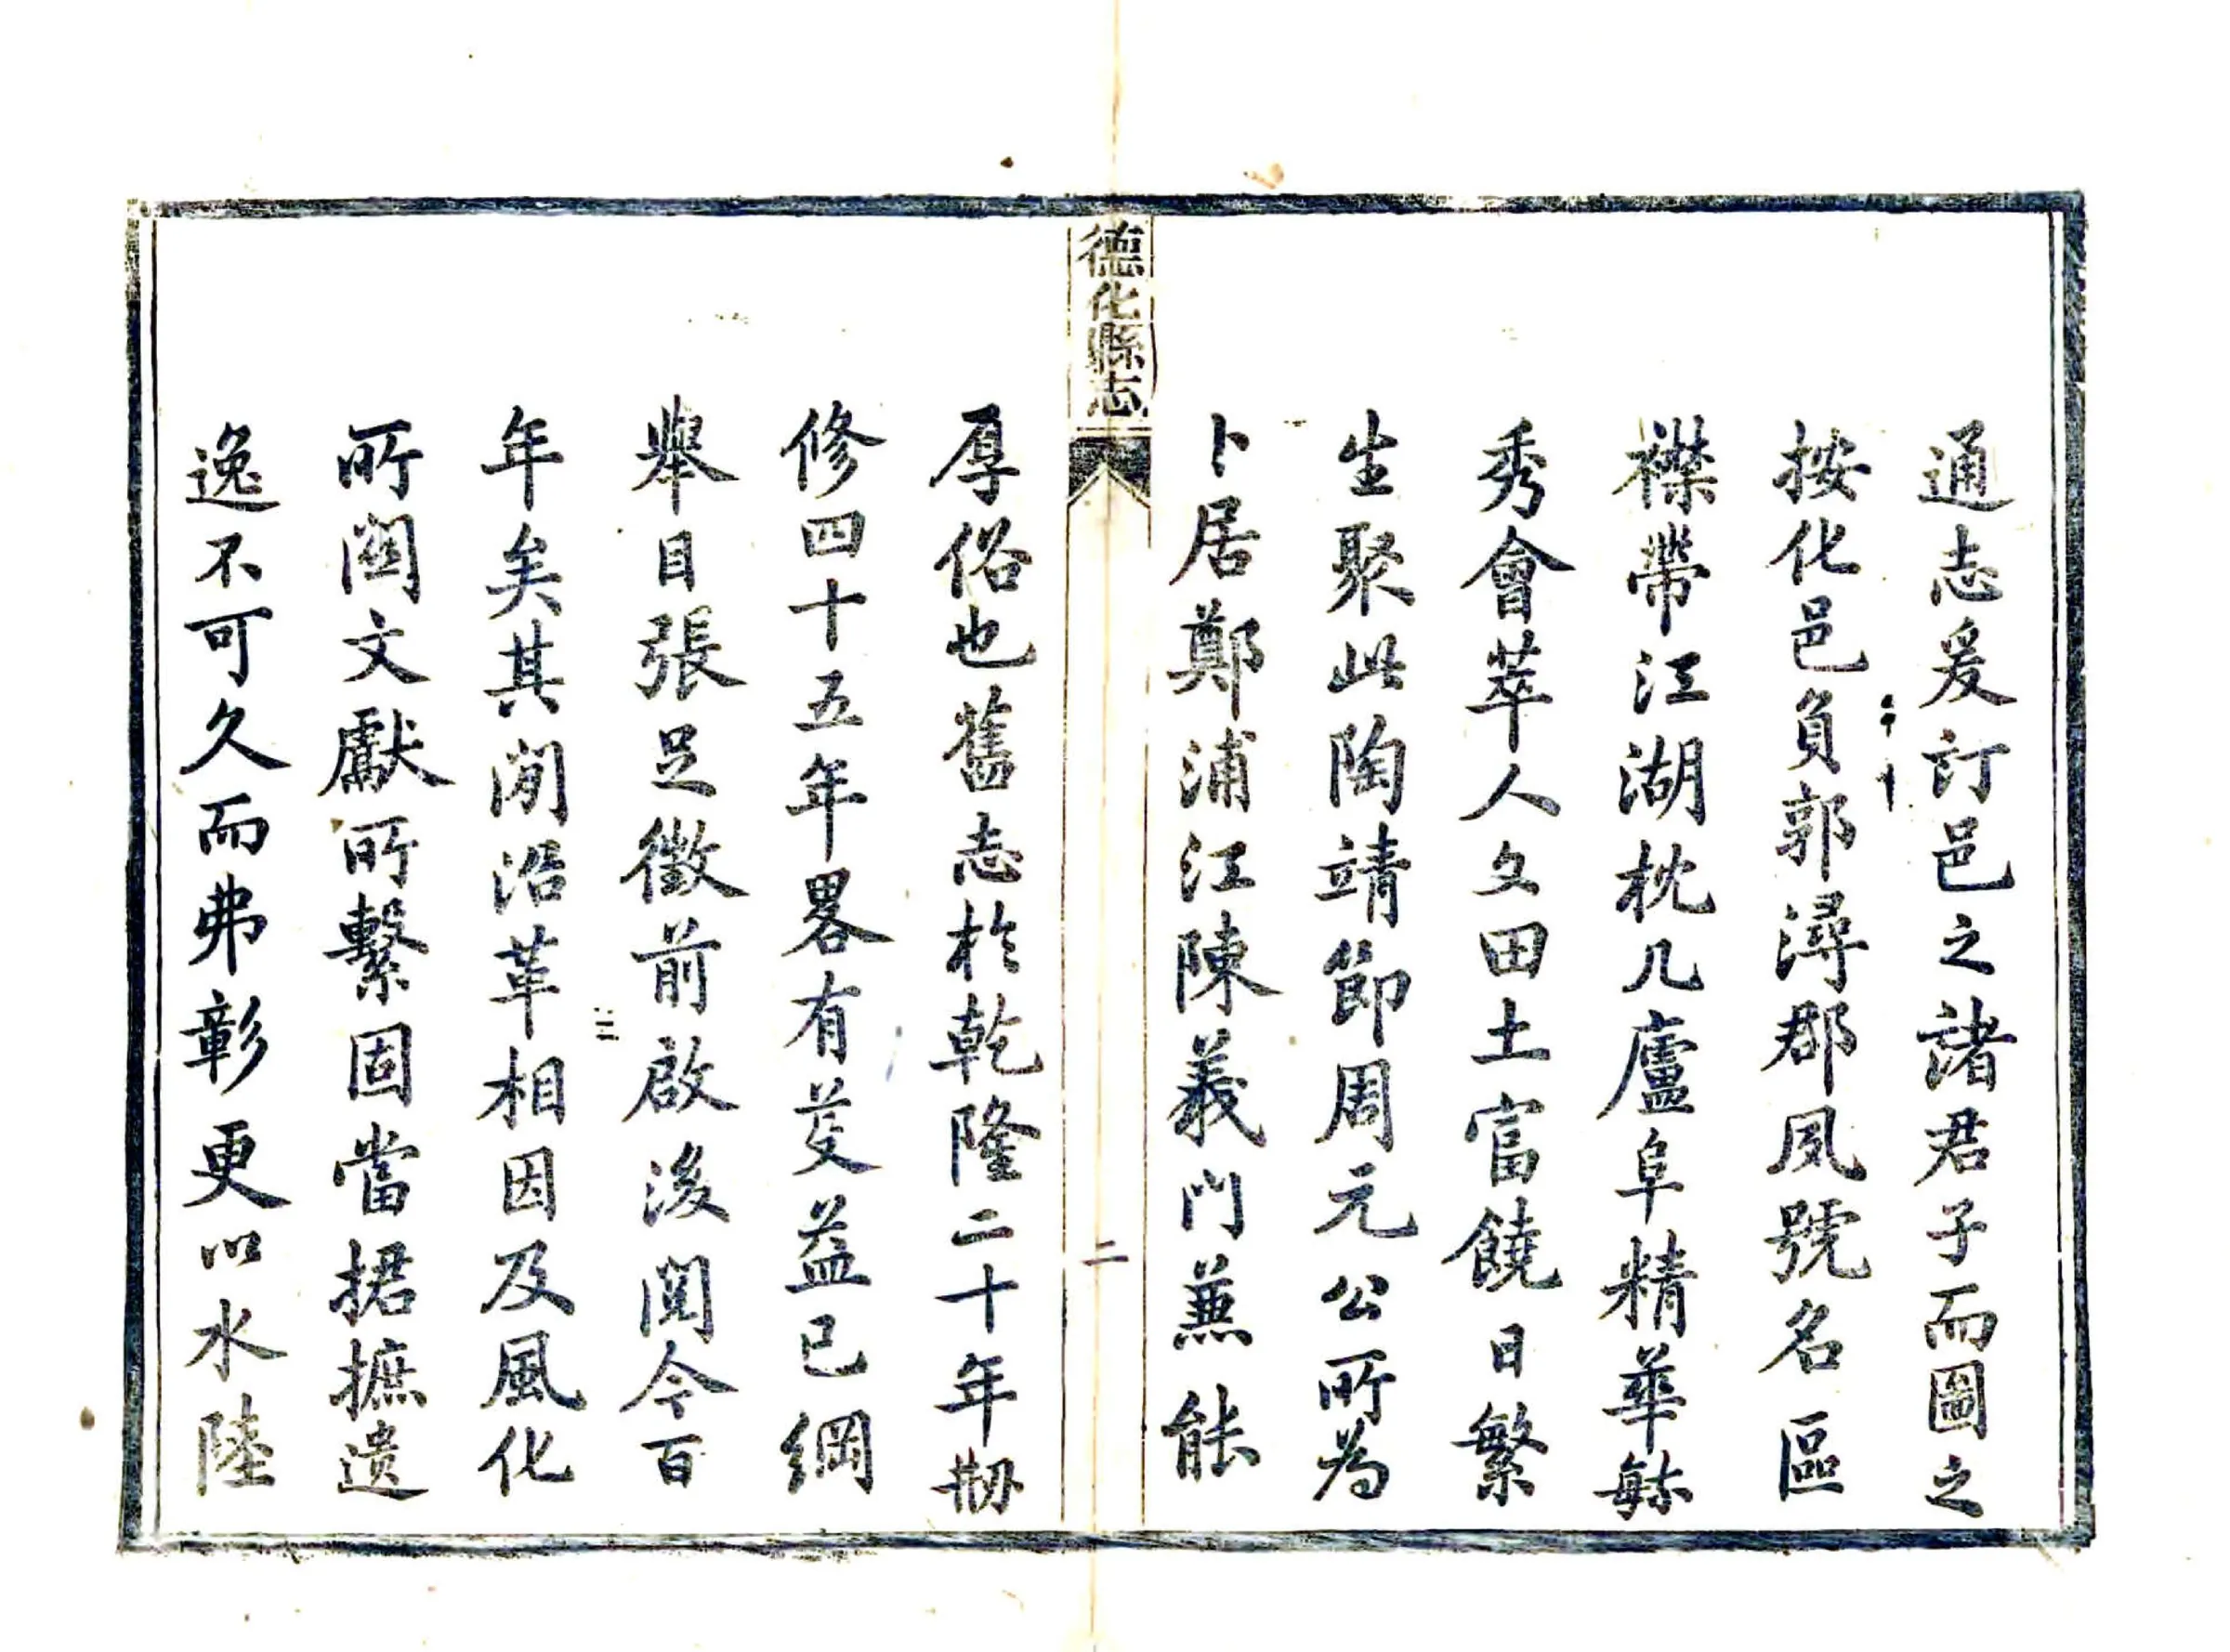 通志爰訂邑之諸君子而圖之
按化邑負郭潯郡夙號名區
襟帶江湖枕几廬阜精華毓
秀會萃人文田土富饒日繁
生聚此陶靖節周元公所為
卜居鄭浦江陳義門蕪能
德化縣志
二
厚俗也舊志於乾隆二十年剙
修四十五年畧有芟益已綱
舉目張足徵前啟後閱今百
年矣其間沿革相因及風化
所關文獻所繫固當捃摭遺
逸不可久而弗彰更以水陸